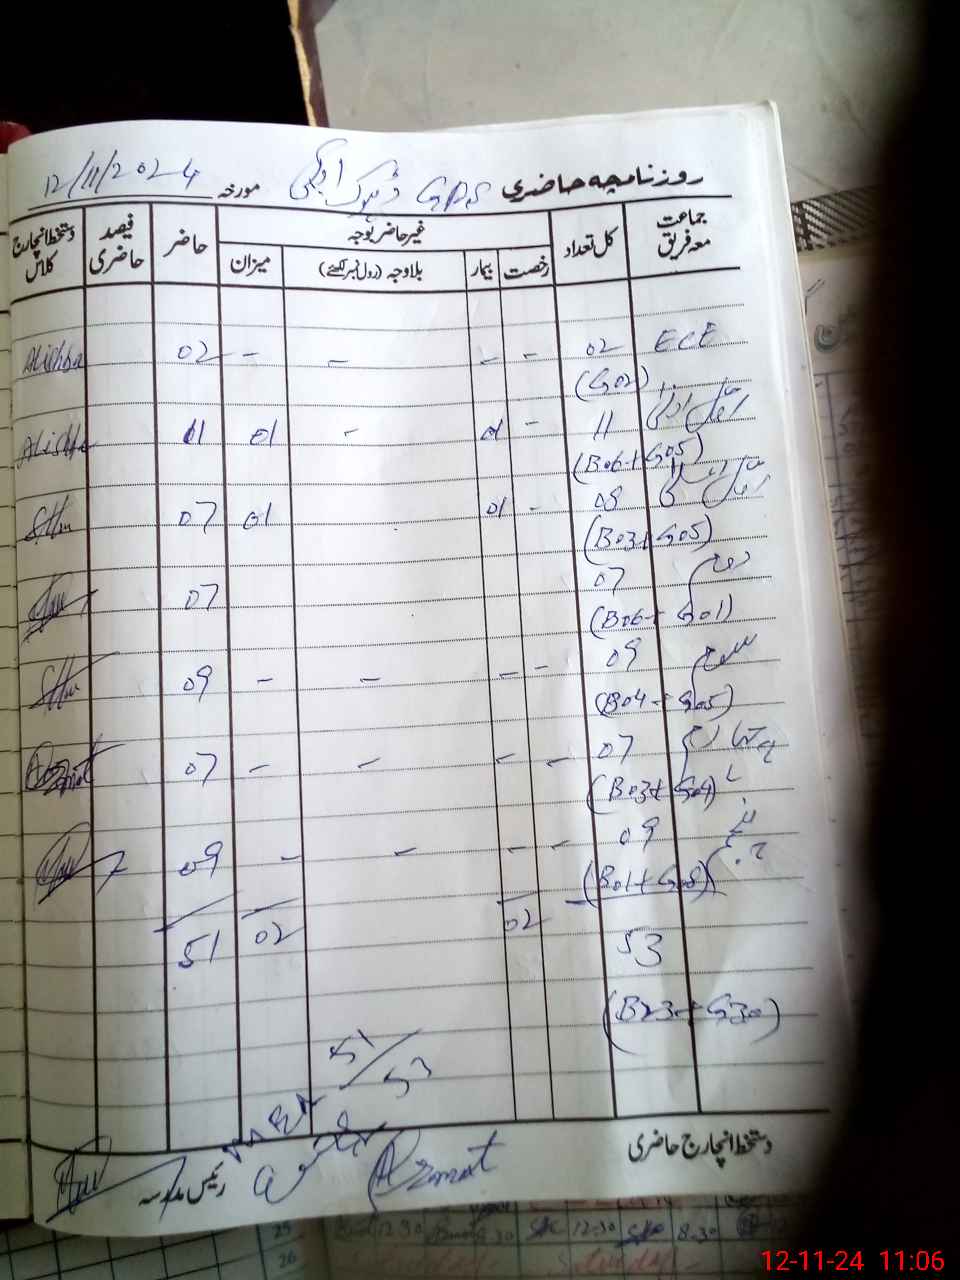 روزنامچہ حاضری GPS ڈہوک مورخہ 12/11/2024
جماعت معہ فریق کل تعداد غیر حاضر بوجہ حاضر فیصد حاضری دستخط انچارج کلاس
رخصت بیمار بلاوجہ (رول نمبر لکھئے) میزان
ECE 02 - - - - 02 Alishba
(G02)
11 - 01 - 01 11 Alishba
(B06+G05)
08 - 01 01 07
(B03+G05)
دوم 07 07
(B06+G01)
سوم 09 - - - - 09
(B04+G05)
چہارم 07 - - - - 07 Azmat
(B03+G04)
پنجم 09 - - - - 09
(B01+G08)
53 02 02 51
(B23+G30)
51/53
دستخط انچارج حاضری Azmat رئیس مدرسہ
25
26
12.30 8.30 12.30 8.30
12-11-24 11:06